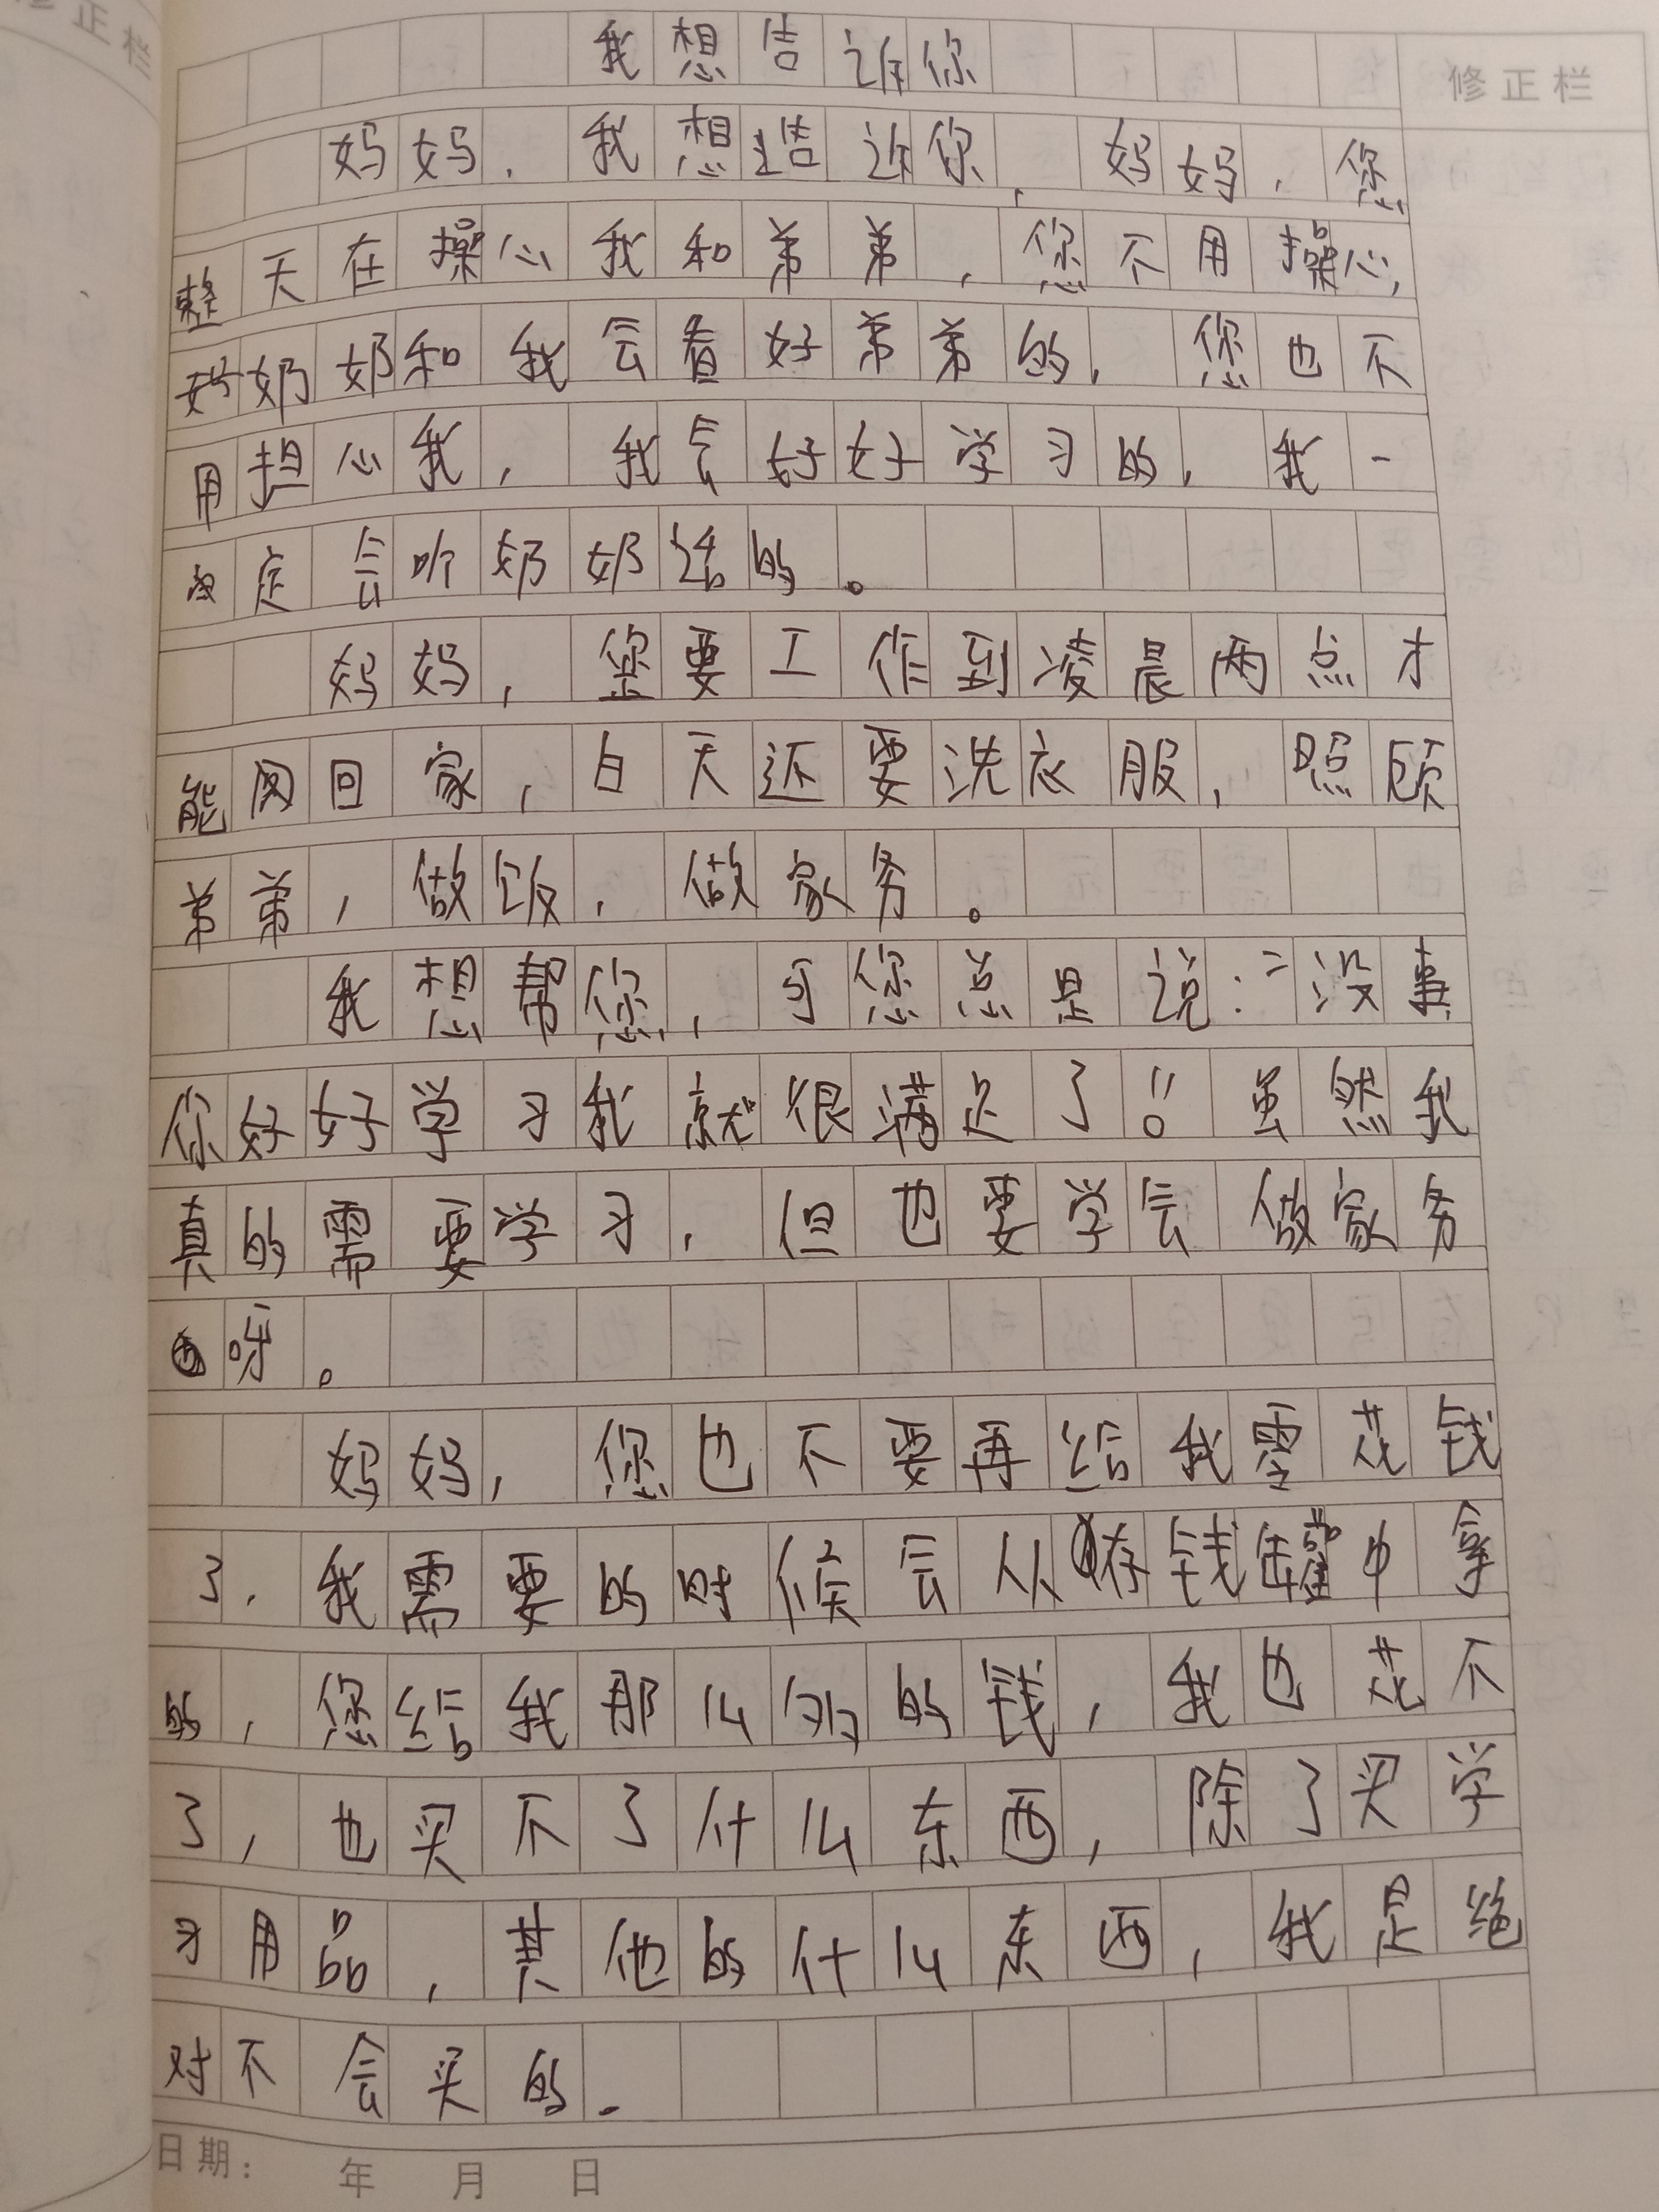 我想告诉你
修正栏
妈妈，我想告诉你，妈妈，您
整天在操心我和弟弟，您不用操心，
奶奶和我会看好弟弟的，您也不
用担心我，我会好好学习的，我一
定会听奶奶话的。
妈妈，您要工作到凌晨两点才
能回家，白天还要洗衣服，照顾
弟弟，做饭，做家务。
我想帮您，可您总是说：“没事
你好好学习我就很满足了”。虽然我
真的需要学习，但也要学会做家务
呀。
妈妈，您也不要再给我零花钱
了，我需要的时候会从存钱罐中拿
的，您给我那么多的钱，我也花不
了，也买不了什么东西，除了买学
习用品，其他的什么东西，我是绝
对不会买的.
日期： 年 月 日